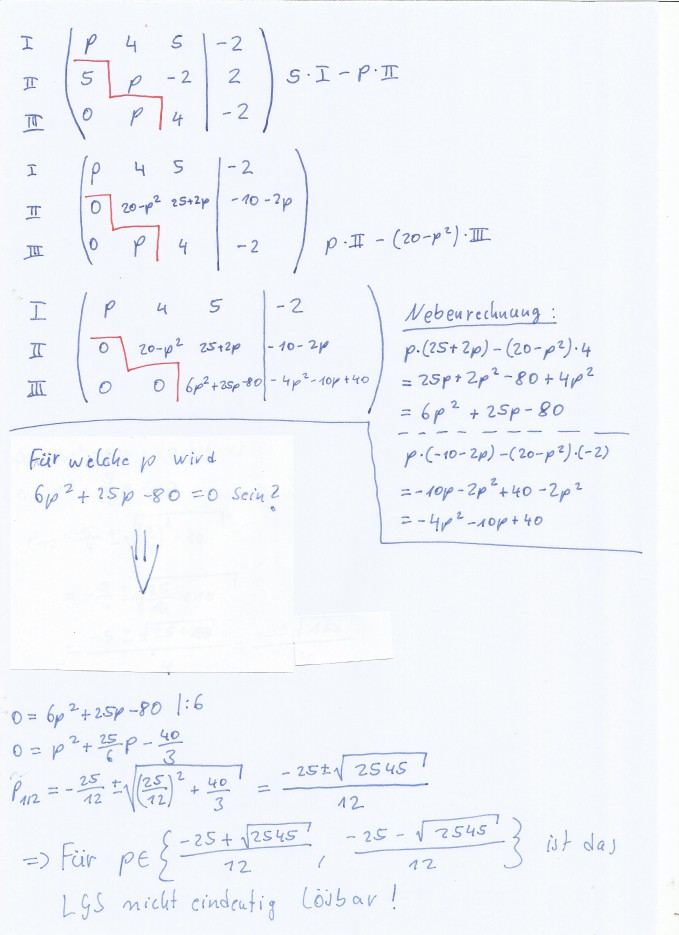 I p 4 5 | -2
II 5 p -2 | 2 5·I - p·II
III 0 p 4 | -2
I p 4 5 | -2
II 0 20-p² 25+2p | -10-2p
III 0 p 4 | -2 p·II - (20-p²)·III
I p 4 5 | -2
II 0 20-p² 25+2p | -10-2p
III 0 0 6p²+25p-80 | -4p²-10p+40
Nebenrechnung:
p·(25+2p)-(20-p²)·4
= 25p+2p²-80+4p²
= 6p²+25p-80
p·(-10-2p)-(20-p²)·(-2)
= -10p-2p²+40-2p²
= -4p²-10p+40
Für welche p wird
6p²+25p-80=0 sein?
⇓
0 = 6p²+25p-80 |:6
0 = p²+25/6p-40/3
P1/2 = -25/12 ± √((25/12)²+40/3) = (-25±√2545)/12
=> Für p∈{(-25+√2545)/12, (-25-√2545)/12} ist das
LGS nicht eindeutig lösbar!